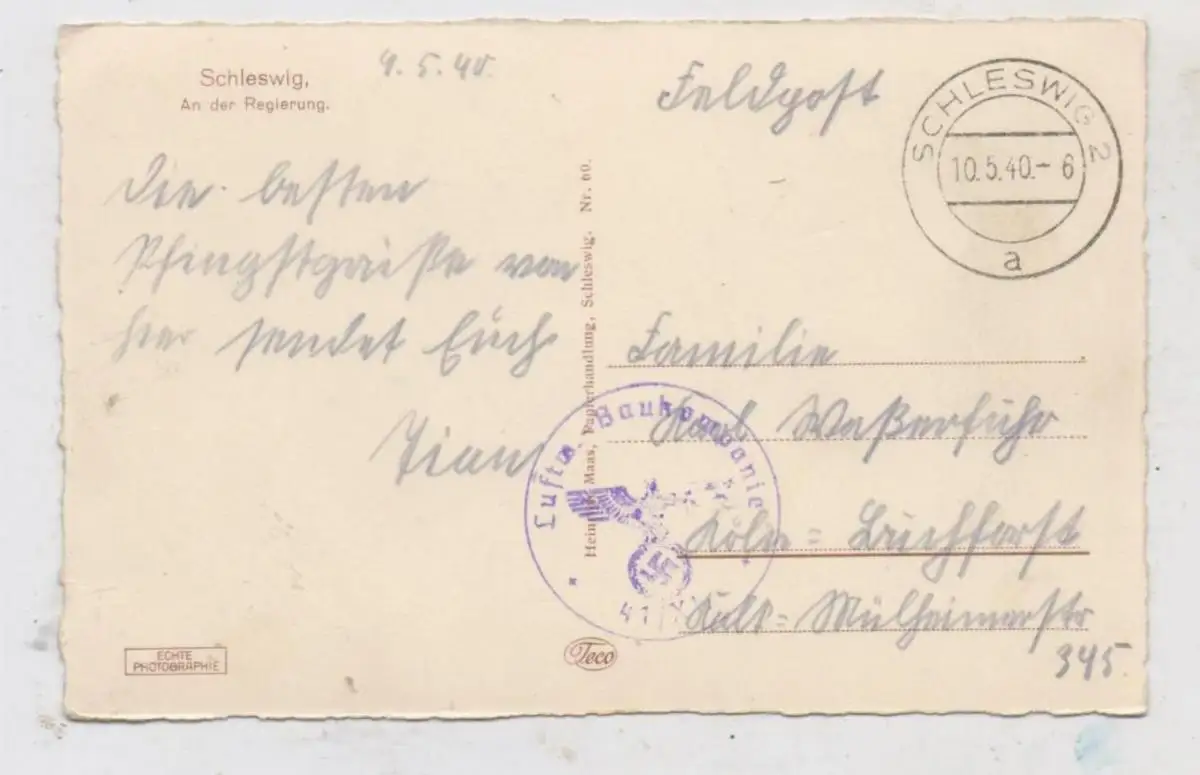 Schleswig,
An der Regierung.
9.5.40.
Feldpost
SCHLESWIG 2
10.5.40.- 6
a
Die besten
Pfingstgrüße von
hier sendet Euch
Heinrich Maas, Papierhandlung, Schleswig. Nr. 60.
Familie
Karl Waßerfuhr
Köln = Buchforst
Kalk = Mülheimerstr
345.
Luftw. Baukompanie
41
ECHTE
PHOTOGRAPHIE
Teco